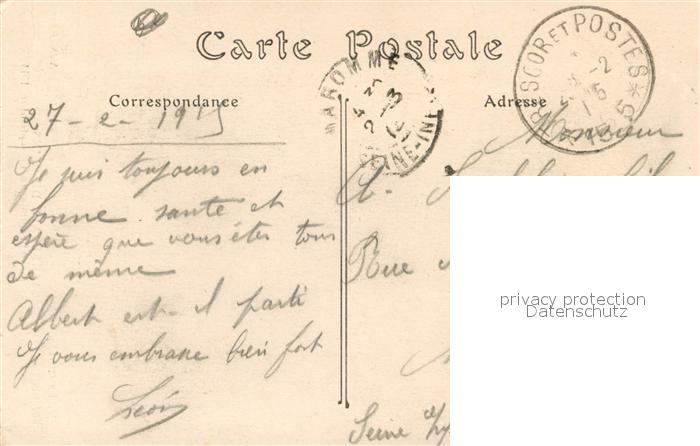 Carte Postale
Correspondance
Adresse
MAROMME
SEINE-INF
TRESOR ET POSTES
* 155 *
27-2-1915
Je suis toujours en
bonne santé et
espère que vous êtes tous
de même
Albert est-il parti
Je vous embrasse bien fort
Léon
Monsieur
A.
Rue
Seine
privacy protection
Datenschutz